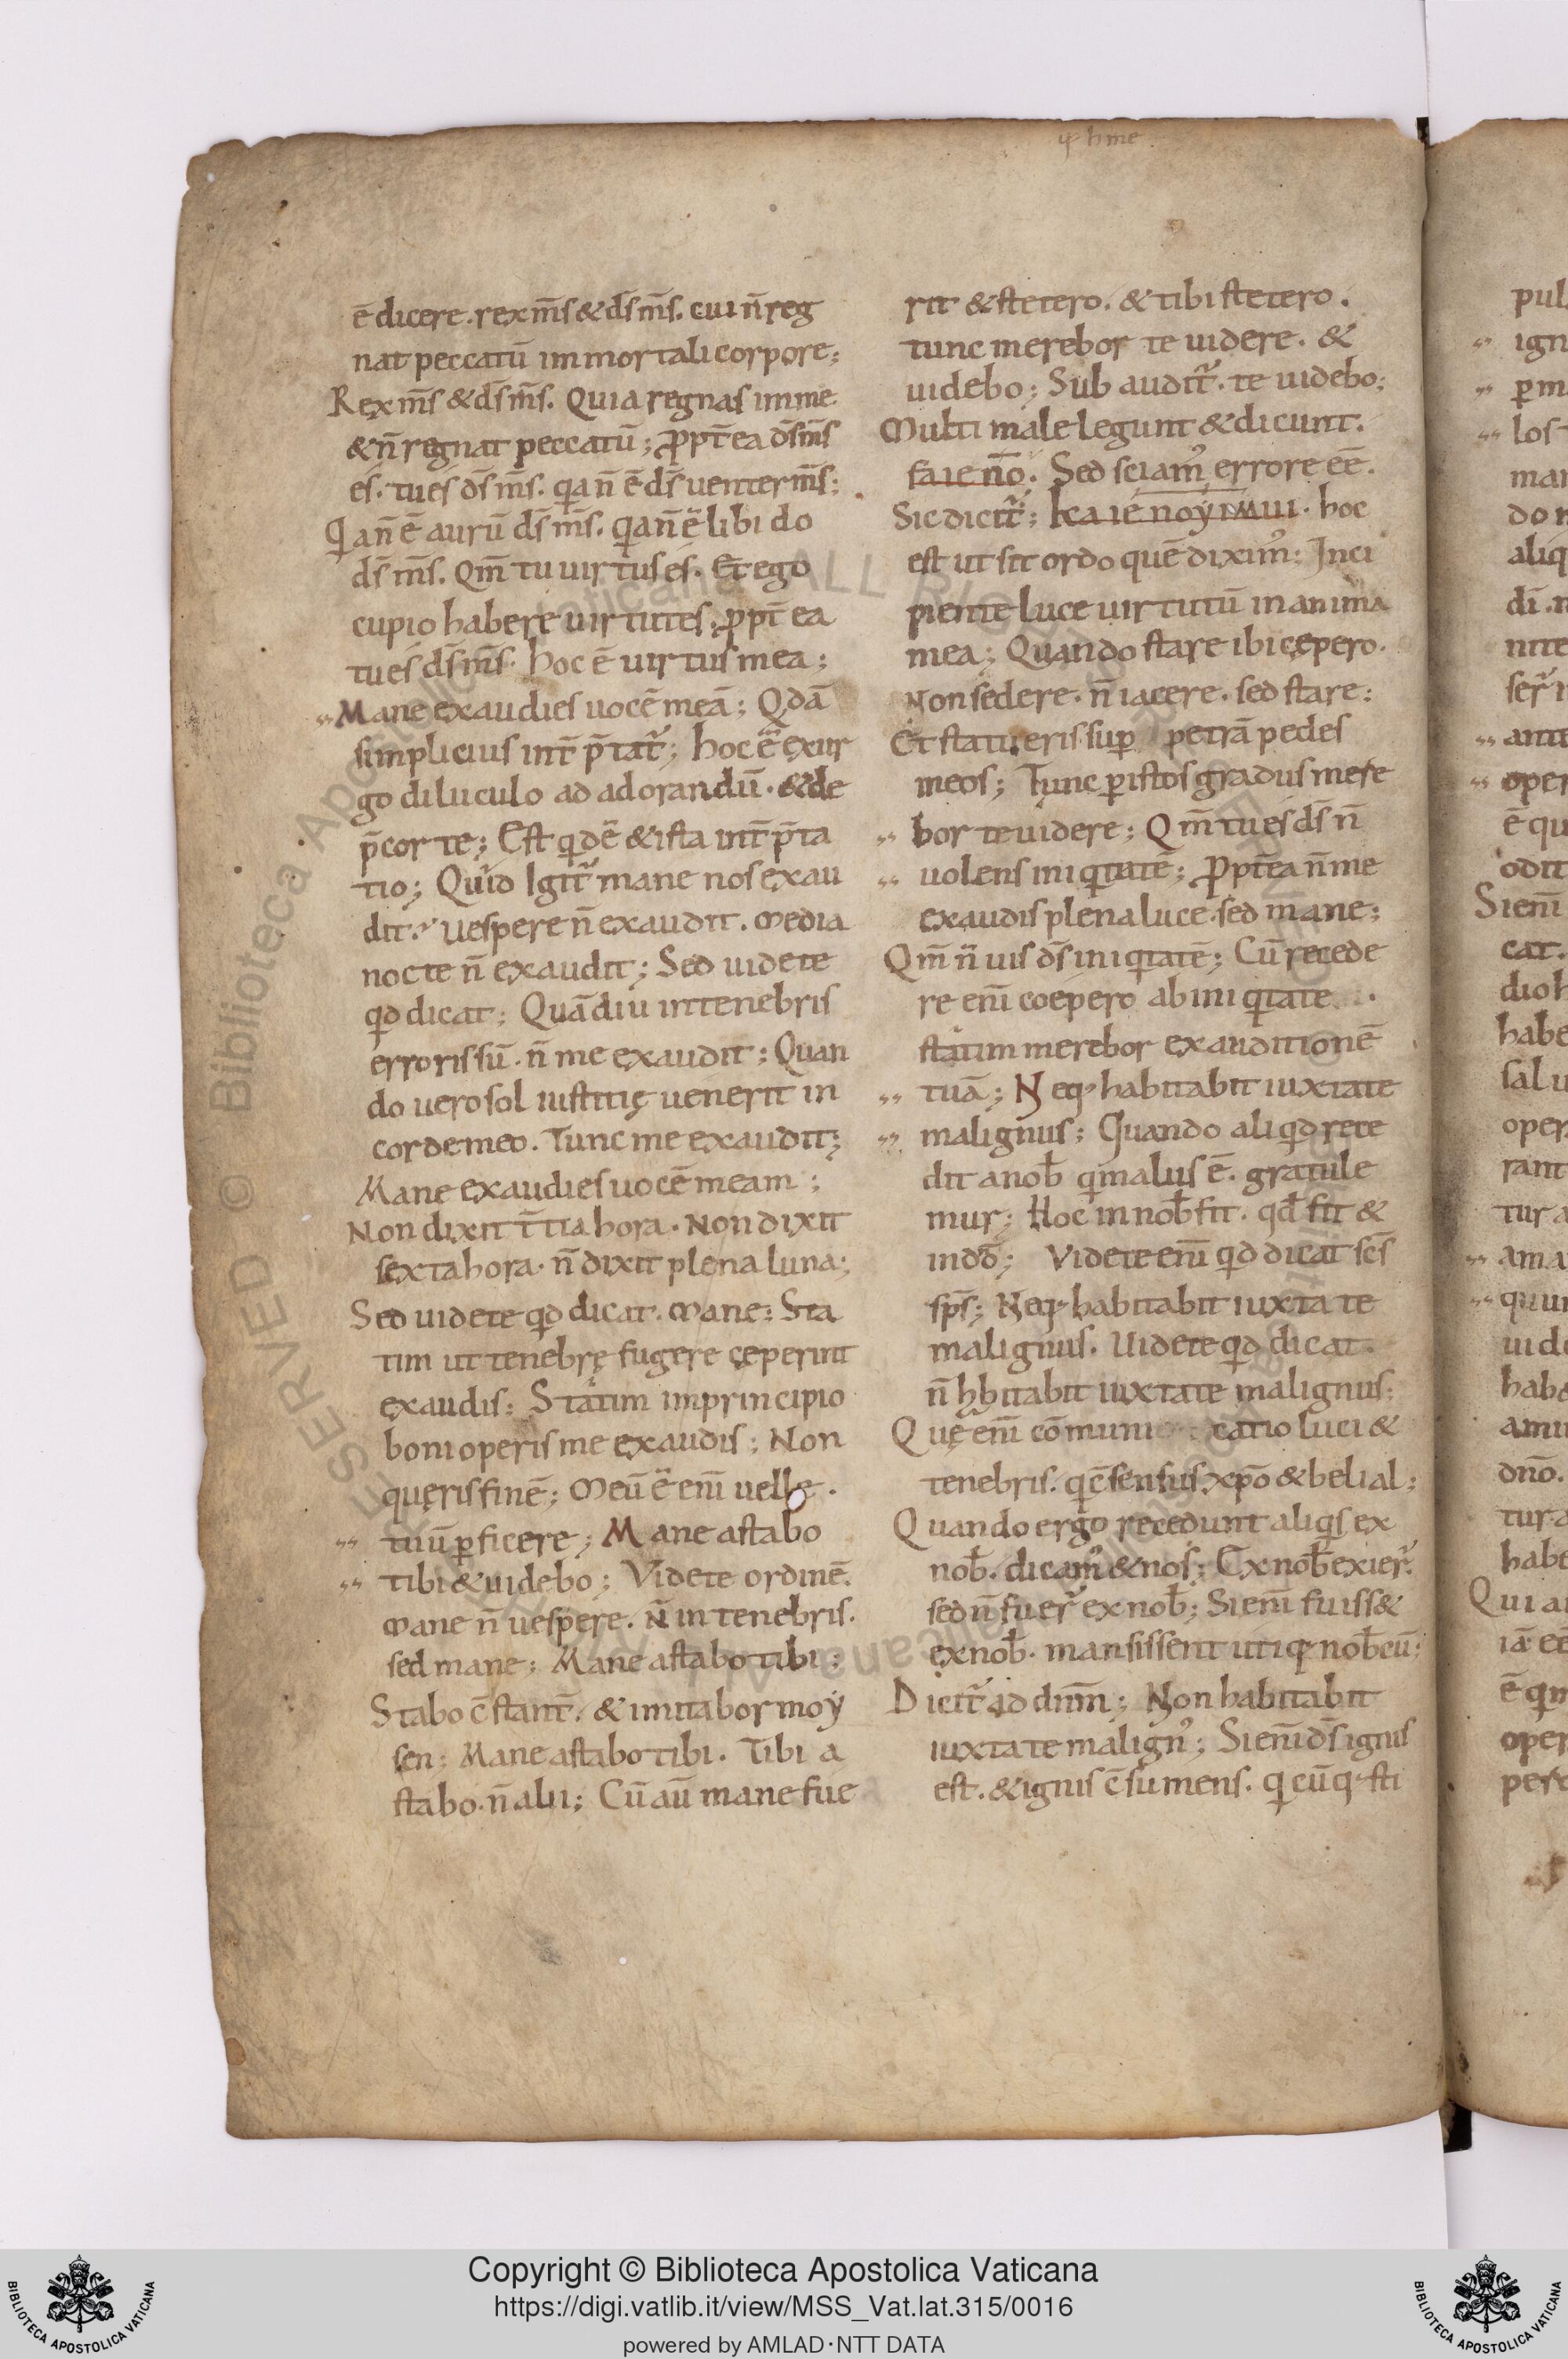 ē dicere. rex m̄s & d̄s m̄s. cui n̄ reg
nat peccatū immortali corpore;
Rex m̄s & d̄s m̄s. Quia regnas imme
& n̄ regnat peccatū; ꝓpt̄ea d̄s m̄s
es. tu es d̄s m̄s. q̇a n̄ ē d̄s uenter m̄s;
Q̇a n̄ ē aurū d̄s m̄s. q̇a n̄ ē libido
d̄s m̄s. Qm̄ tu uirtus es. Et ego
cupio habere uirtutes; ꝓpt̄ea
tu es d̄s m̄s. hoc ē uirtus mea;
Mane exaudies uocē meā; Qdā
simplicius int̄p̄tat᷑; hoc ē exur
go diluculo ad adorandū. & de
p̄cor te; Est qdē & ista int̄p̄ta
tio; Quid Igit᷑ mane nos exau
dit? Uespere n̄ exaudit. media
nocte n̄ exaudit; Sed uidete
qd dicat; Quādiu intenebris
erroris sū. n̄ me exaudit; Quan
do uero sol iustitię uenerit in
corde meo. Tunc me exaudit;
Mane exaudies uocē meam;
Non dixit t̄tia hora. Non dixit
sexta hora. n̄ dixit plena luna;
Sed uidete qd dicat. mane; Sta
tim ut tenebrę fugere cęperint
exaudis; Statim imprincipio
boni operis me exaudis; Non
quęris finē; Meū ē enī uelle.
tuū ꝑficere; Mane astabo
tibi & uidebo; Videte ordinē.
mane n̄ uespere. N̄ in tenebris.
sed mane; Mane astabo tibi;
Stabo c̄ stant̄. & imitabor moy
sen; Mane astabo tibi. Tibi a
stabo. n̄ alii; Cū aū mane fue
rit & stetero. & tibi stetero.
tunc merebor te uidere. &
uidebo; Sub audit᷑. te uidebo;
Multi male legunt & dicunt.
Sed sciam᷒ errore eē.
Sic dicit᷑; hoc
est ut sit ordo quē dixim᷒; Inci
piente luce uirtutū in anima
mea; Quando stare ibi cępero.
Non sedere. n̄ iacere. sed stare;
Et statueris sup petrā pedes
meos; Tunc ꝑ istos gradus mere
bor te uidere; Qm̄ tu es d̄s n̄
uolens iniqtatē; ꝓpt̄ea n̄ me
exaudis plena luce. sed mane;
Qm̄ n̄ uis d̄s iniqtatē; Cū recede
re enī coepero ab iniqtate.
statim merebor exauditionē
tuā; Neq; habitabit iuxta te
malignus; Quando aliqd rece
dit a nob̄ qmalus ē. gratule
mur; Hoc in nob̄ fit. qd̄ fit &
in dō; Videte enī qd dicat sc̄s
sp̄s; Neq; habitabit iuxta te
malignus. Uidete qd dicat.
n̄ hbitabit iuxta te malignus;
Quę enī cōmunicatio luci &
tenebris. q c̄sensus xp̄o & belial;
Quando ergo recedunt aliqs ex
nob̄. dicam᷒ & nos; Ex nob̄ exier᷑.
sed n̄ fuer᷑ ex nob̄; Si enī fuiss&
ex nob̄. mansissent utiq; nob̄cū;
Dicit᷑ ad dnm̄; Non habitabit
iuxta te malign᷒; Si enī d̄s ignis
est. & ignis c̄sumens. q cūq; sti
Copyright © Biblioteca Apostolica Vaticana
https://digi.vatlib.it/view/MSS_Vat.lat.315/0016
powered by AMLAD·NTT DATA
BIBLIOTECA APOSTOLICA VATICANA
BIBLIOTECA APOSTOLICA VATICANA